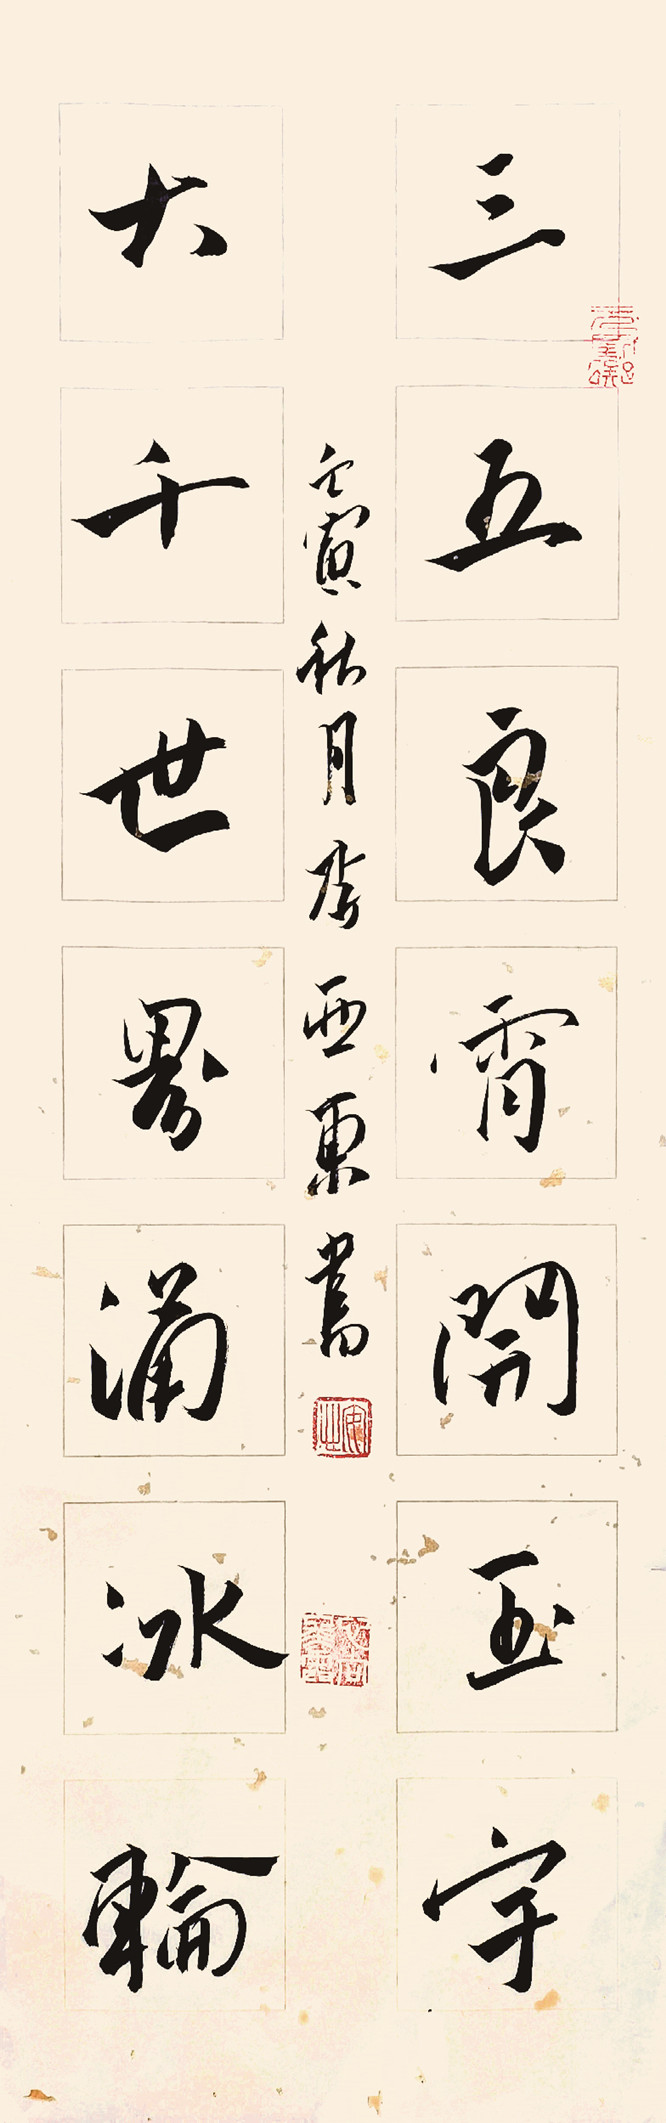 三五良宵開玉宇
大千世界滿冰輪
壬寅秋月李亞東書